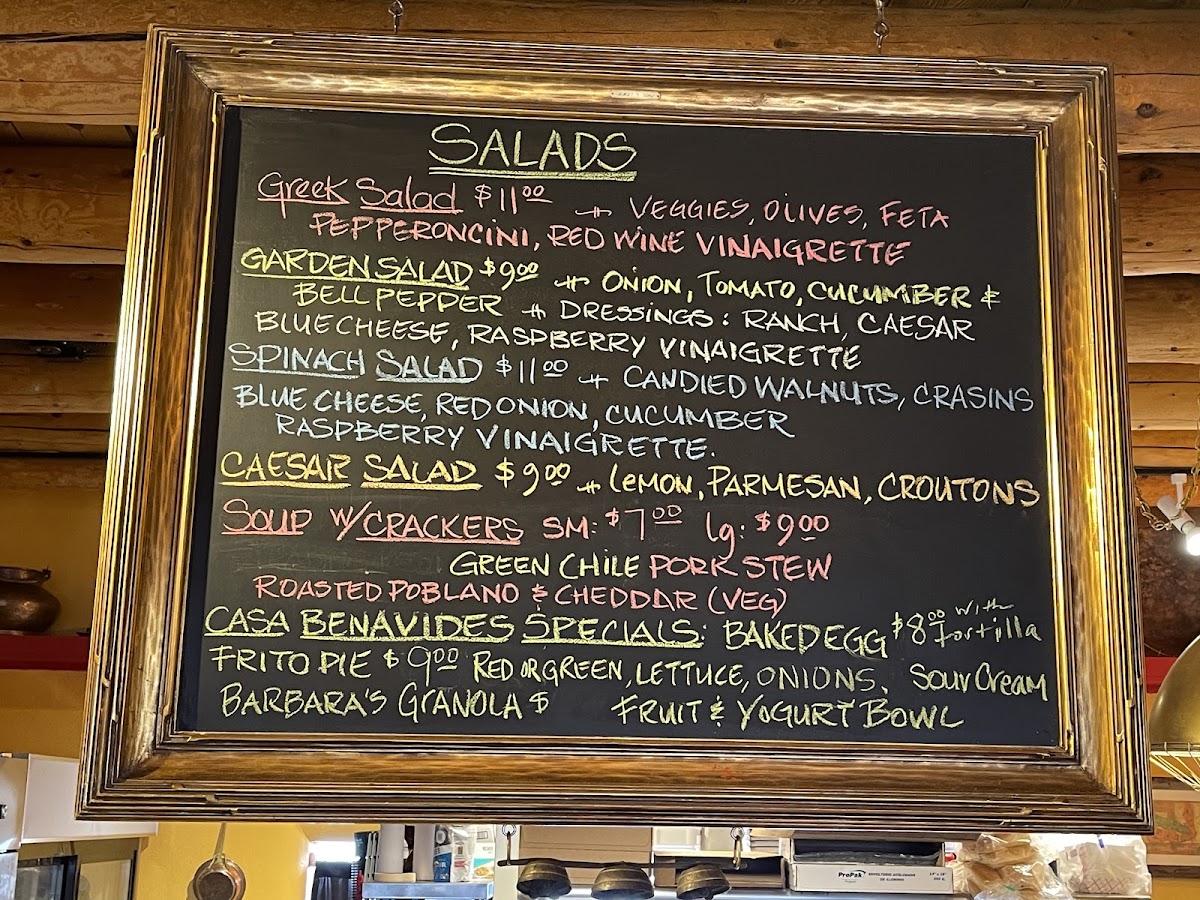 SALADS
Greek Salad $11.00 → VEGGIES, OLIVES, FETA
PEPPERONCINI, RED WINE VINAIGRETTE
GARDEN SALAD $9.00 → ONION, TOMATO, CUCUMBER &
BELL PEPPER → DRESSINGS: RANCH, CAESAR
BLUE CHEESE, RASPBERRY VINAIGRETTE
SPINACH SALAD $11.00 → CANDIED WALNUTS, CRASINS
BLUE CHEESE, RED ONION, CUCUMBER
RASPBERRY VINAIGRETTE.
CAESAR SALAD $9.00 → LEMON, PARMESAN, CROUTONS
SOUP W/CRACKERS SM: $7.00 lg: $9.00
GREEN CHILE PORK STEW
ROASTED POBLANO & CHEDDAR (VEG)
CASA BENAVIDES SPECIALS: BAKED EGG $8.00 with Tortilla
FRITO PIE $9.00 RED OR GREEN, LETTUCE, ONIONS, Sour Cream
BARBARA'S GRANOLA $ FRUIT & YOGURT BOWL
ProPak